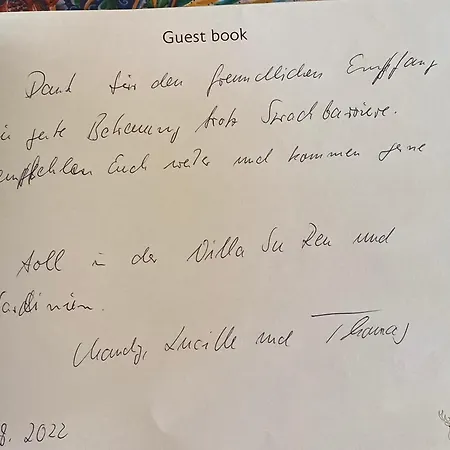 Guest book
Dank für den freundlichen Empfang
gute Betreuung trotz Sprachbarriere.
empfehlen Euch weiter und kommen gerne
toll in der Villa Su Ren und
Sardinien.
Mandy, Lucille und Thomas
8. 2022